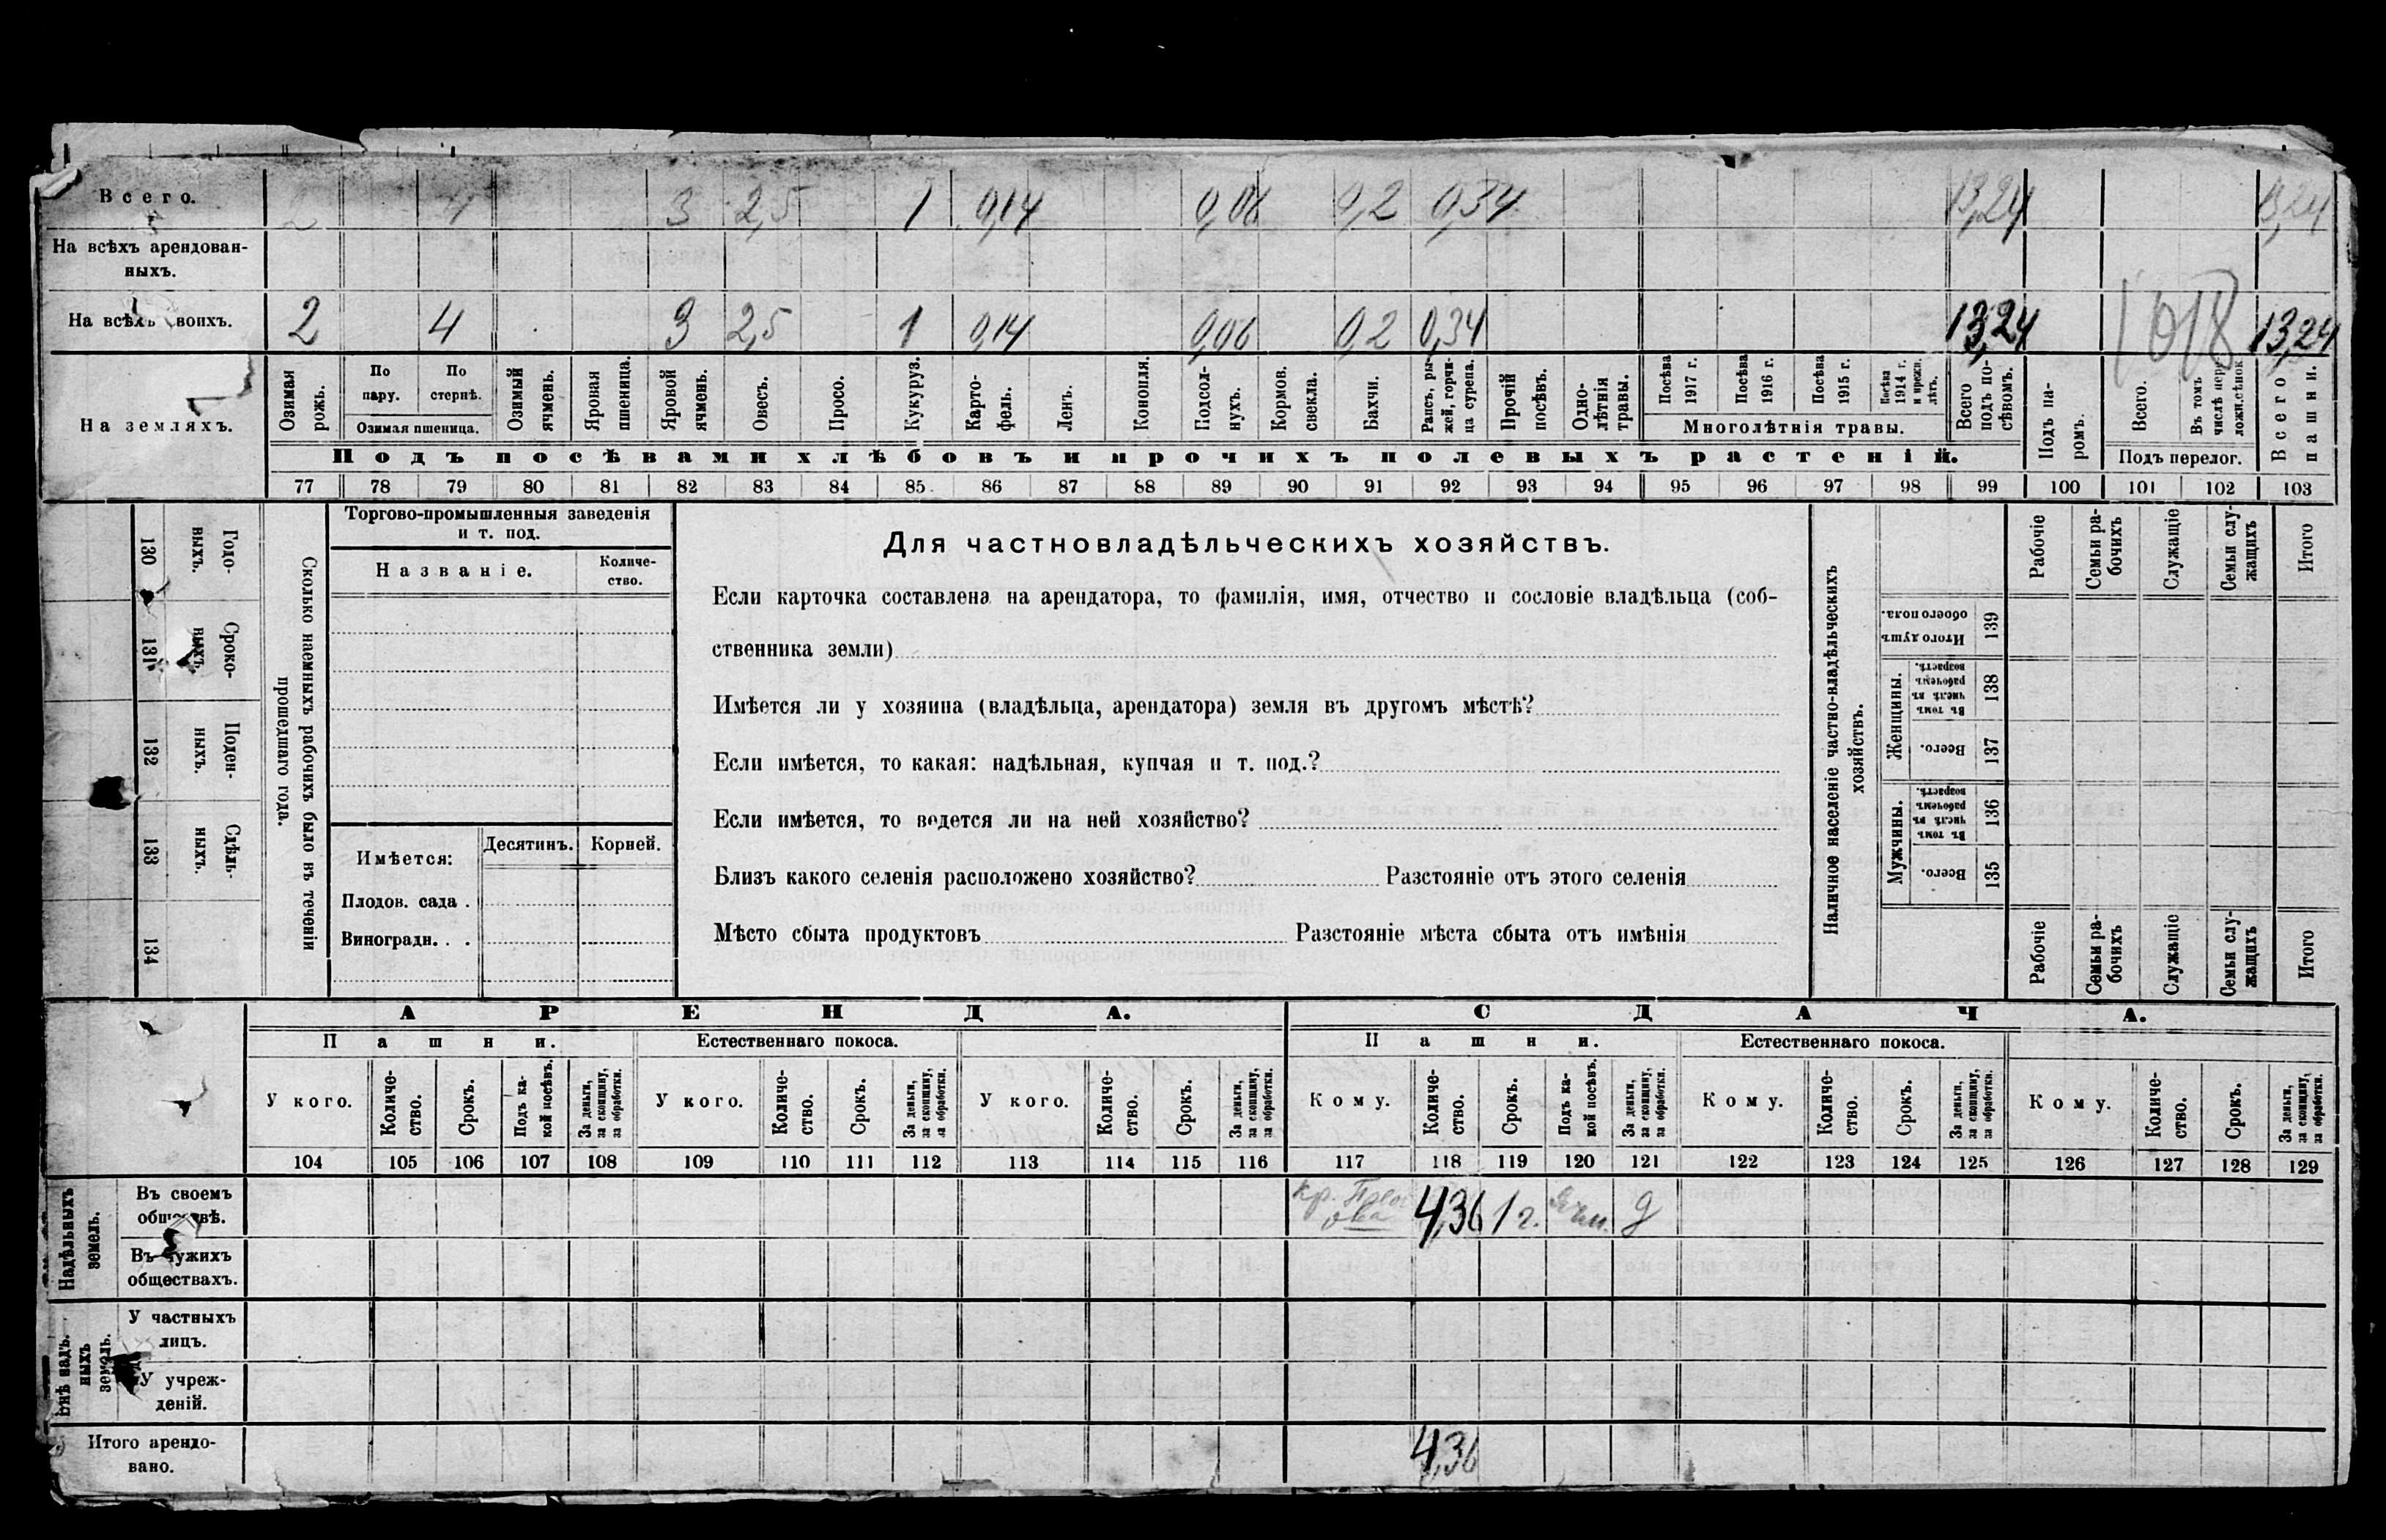 Всего. 2 4 3 2,5 1 0,14 0,06 0,2 0,34 13,24 13,24
На всѣхъ арендован-
ныхъ.
На всѣхъ своихъ. 2 4 3 2,5 1 0,14 0,06 0,2 0,34 13,24 1018 13,24
На земляхъ.
Озимая рожь.
По пару.
По стернѣ.
Озимая пшеница.
Озимый ячмень.
Яровая пшеница.
Яровой ячмень.
Овесъ.
Просо.
Кукуруз.
Карто-
фель.
Ленъ.
Конопля.
Подсол-
нухъ.
Кормов. свекла.
Бахчи.
Рапсъ, ры-
жей, горчи-
ца сурепа.
Прочій посѣвъ.
Одно-
лѣтнія травы.
Посѣва 1917 г.
Посѣва 1916 г.
Посѣва 1915 г.
Посѣва 1914 г. и прежн. лѣтъ.
Многолѣтнія травы.
Всего подъ по-
сѣвомъ.
Подъ па-
ромъ.
Всего.
Въ томъ числѣ пере-
ложн. сѣнок.
Подъ перелог.
Всего пашни.
Подъ посѣвами хлѣбовъ и прочихъ полевыхъ растеній.
77 78 79 80 81 82 83 84 85 86 87 88 89 90 91 92 93 94 95 96 97 98 99 100 101 102 103
130 131 132 133 134
Годо-
выхъ.
Сроко-
выхъ.
Поден-
ныхъ.
Сдѣль-
ныхъ.
Сколько наемныхъ рабочихъ было въ теченіи
прошедшаго года.
Торгово-промышленныя заведенія
и т. под.
Названіе.
Количе-
ство.
Имѣется:
Десятинъ.
Корней.
Плодов. сада .
Виноградн. . .
Для частновладѣльческихъ хозяйствъ.
Если карточка составлена на арендатора, то фамилія, имя, отчество и сословіе владѣльца (соб-
ственника земли)
Имѣется ли у хозяина (владѣльца, арендатора) земля въ другомъ мѣстѣ?
Если имѣется, то какая: надѣльная, купчая и т. под.?
Если имѣется, то ведется ли на ней хозяйство?
Близъ какого селенія расположено хозяйство? Разстояніе отъ этого селенія
Мѣсто сбыта продуктовъ Разстояніе мѣста сбыта отъ имѣнія
Наличное населеніе частно-владѣльческихъ
хозяйствъ.
Рабочіе
Семьи ра-
бочихъ
Служащіе
Семьи слу-
жащихъ
Итого
Итого душъ обоего пола. 139
Женщины.
Въ томъ числѣ въ рабочемъ возрастѣ. 138
Всего. 137
Мужчины.
Въ томъ числѣ въ рабочемъ возрастѣ. 136
Всего. 135
Рабочіе
Семьи ра-
бочихъ
Служащіе
Семьи слу-
жащихъ
Итого
АРЕНДА. СДАЧА.
Пашни. Естественнаго покоса. Пашни. Естественнаго покоса.
У кого.
Количе-
ство.
Срокъ.
Подъ ка-
кой посѣвъ.
За деньги, за скопщину, за обработки.
У кого.
Количе-
ство.
Срокъ.
За деньги, за скопщину, за обработки.
У кого.
Количе-
ство.
Срокъ.
За деньги, за скопщину, за обработки.
Кому.
Количе-
ство.
Срокъ.
Подъ ка-
кой посѣвъ.
За деньги, за скопщину, за обработки.
Кому.
Количе-
ство.
Срокъ.
За деньги, за скопщину, за обработки.
Кому.
Количе-
ство.
Срокъ.
За деньги, за скопщину, за обработки.
104 105 106 107 108 109 110 111 112 113 114 115 116 117 118 119 120 121 122 123 124 125 126 127 128 129
Надѣльныхъ
земель.
Въ своемъ
обществѣ. кр. 4,36 1 г. ячм. д
Въ чужихъ
обществахъ.
Внѣ надъ-
ныхъ
земель.
У частныхъ
лицъ.
У учреж-
деній.
Итого арендо-
вано. 4,36